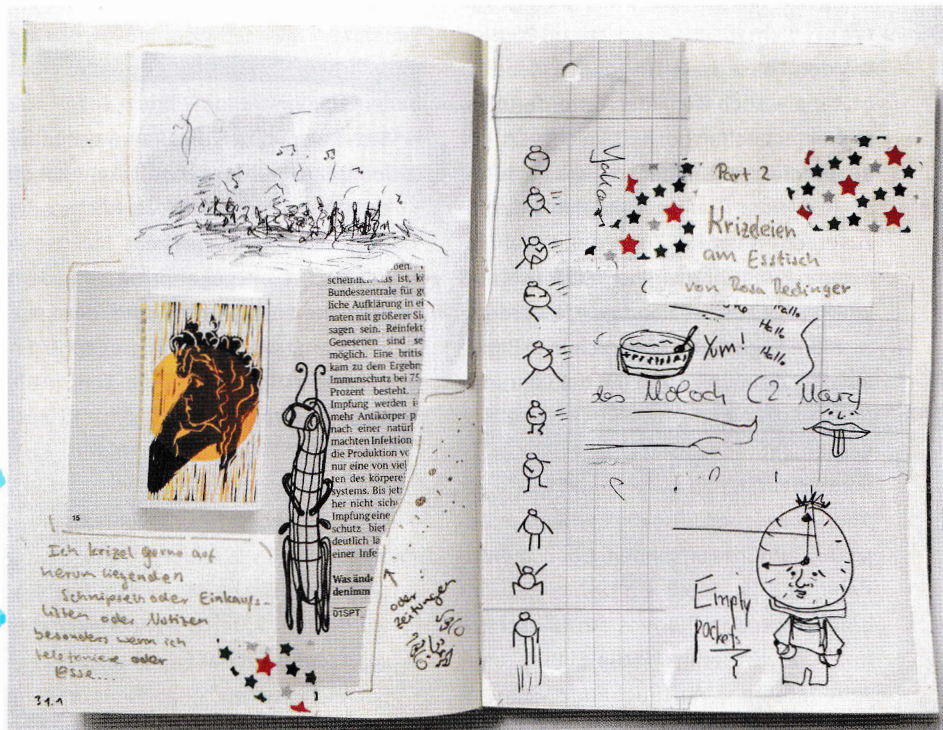 scheinlich das ist, kö
Bundeszentrale für ge
liche Aufklärung in ei
naten mit größerer Si
sagen sein. Reinfekt
Genesenen sind se
möglich. Eine britis
kam zu dem Ergebn
Immunschutz bei 75
Prozent besteht.
Impfung werden i
mehr Antikörper p
nach einer natürl
machten Infektion
die Produktion vo
nur eine von viel
ten des körpere
systems. Bis jetz
her nicht sich
Impfung eine
schutz biet
deutlich lä
einer Infe
Was ände
denimm
01SPT
15
Ich krizel gerne auf
herum liegenden
Schnipseln oder Einkaufs-
listen oder Notizen
besonders wenn ich
telefoniere oder
esse...
oder
zeitungen
31.1
Part 2
Krizeleien
am Esstisch
von Rosa Redinger
Hallo
Hallo
Hallo
Yum!
des Moloch (2 Mare
Empty
pockets